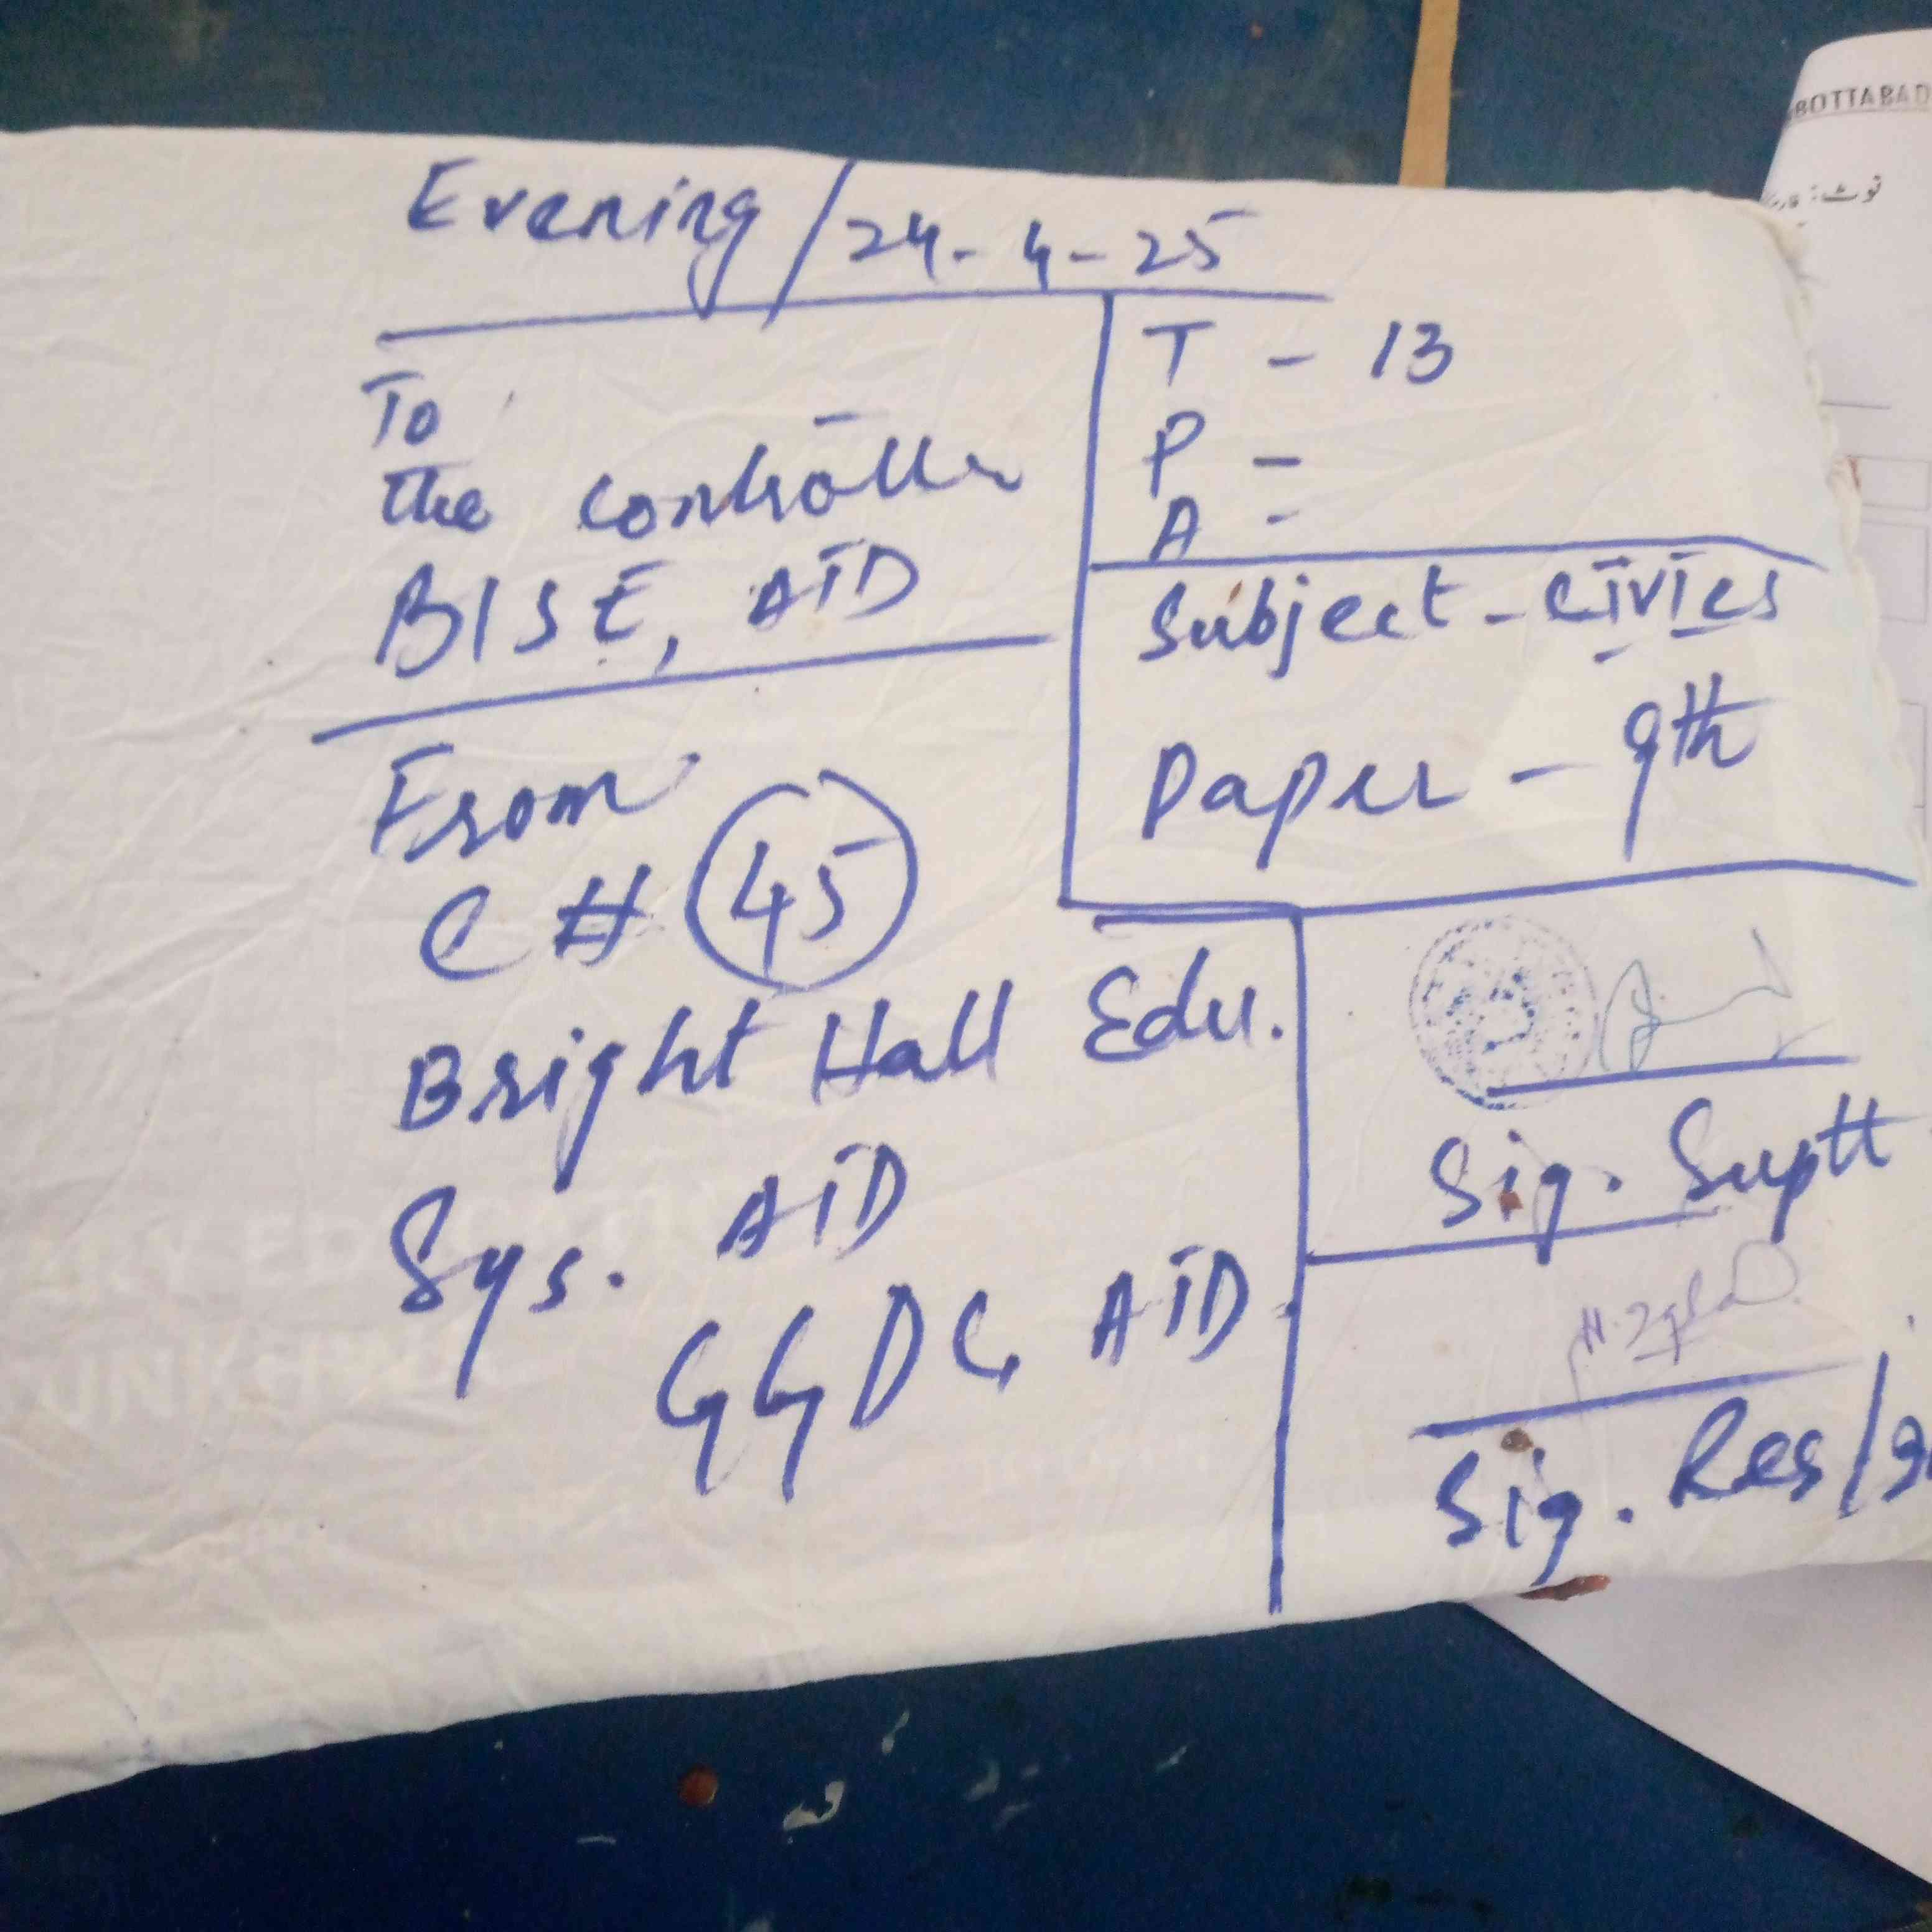 Evening / 24-4-25
To
the controller
BISE, ATD
T - 13
P -
A -
Subject - civics
Paper - 9th
From
C # 45
Bright Hall Edu.
Sys. ATD
GGDC, ATD
Sig. Suptt
Sig. Res/
BOTTABAD
نوٹ: